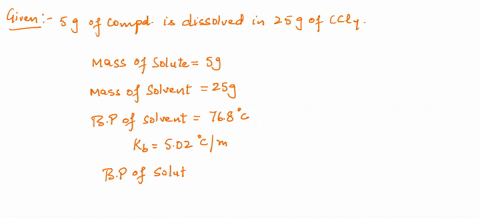 Given:- 5g of compd. is dissolved in 25g of CCl4.
Mass of Solute = 5g
Mass of Solvent = 25g
B.P of solvent = 76.8°C
Kb = 5.02 °C/m
B.P of Solut